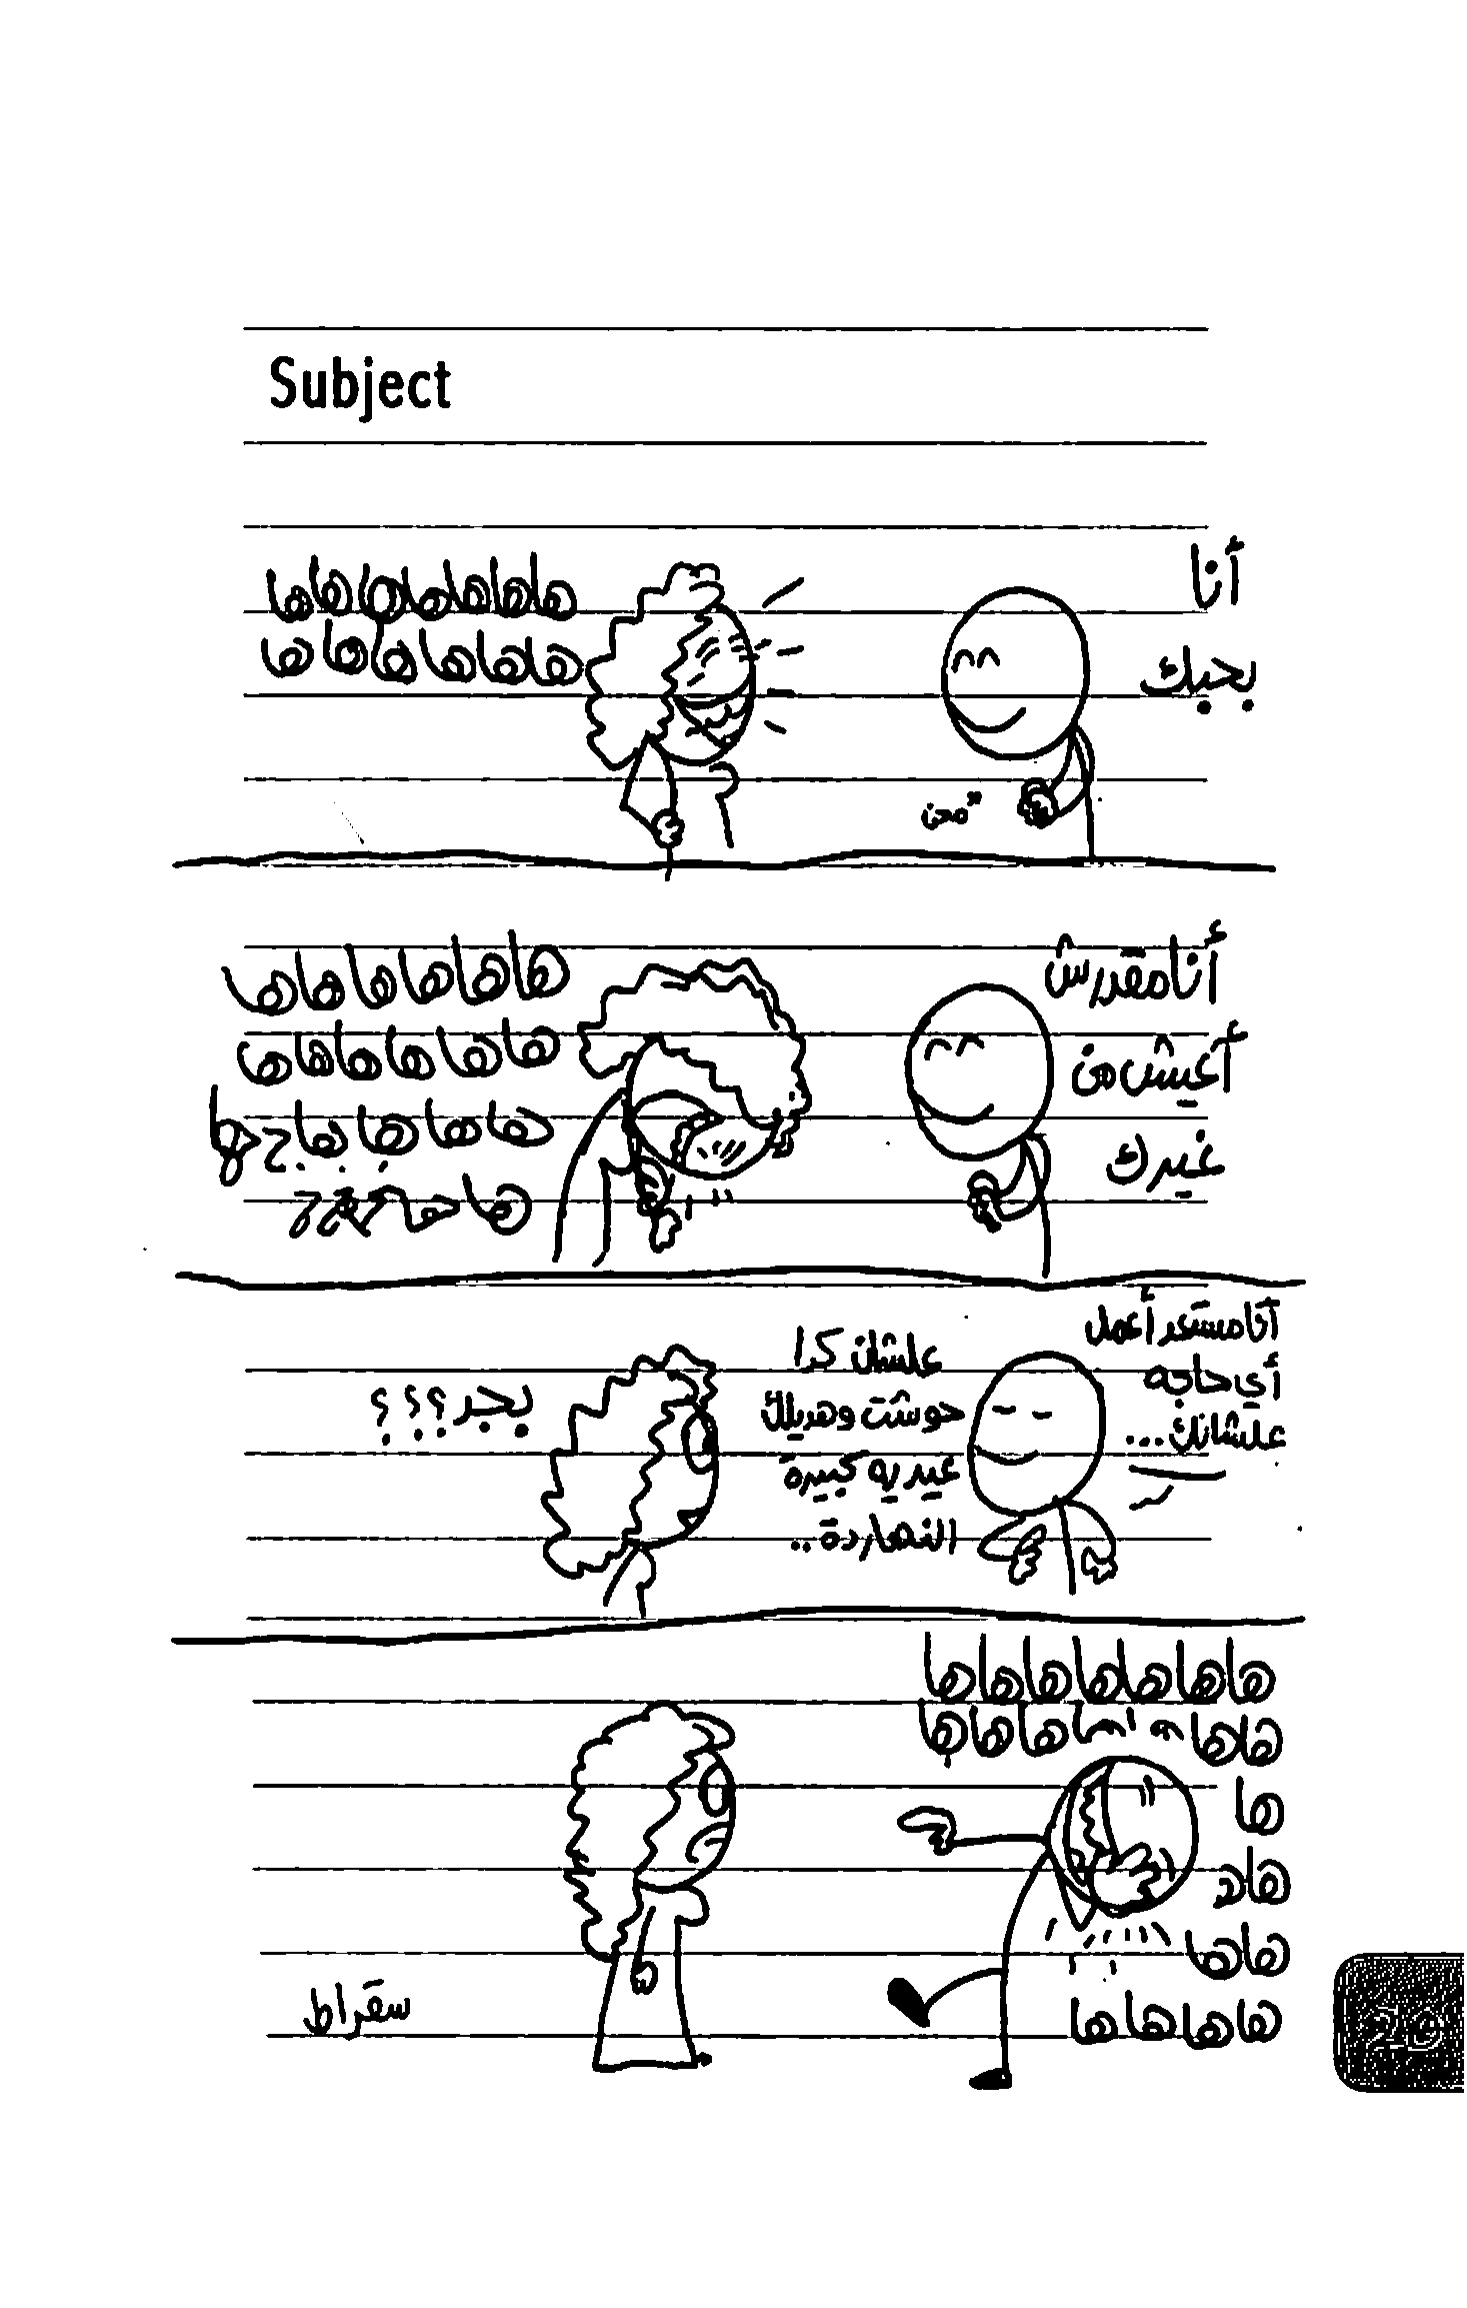 Subject
أنا
بحبك
هاهاهاهاهاهاها
هاهاهاهاهاهاها
أنا مقدرش
أعيش من
غيرك
هاهاهاهاهاها
هاهاهاهاهاها
هاهاهاها
أنا مستعد أعمل
أي حاجه
علشانك...
علشان كدا
حوشت وهديلك
عيديه كبيرة
النهاردة..
بجد؟؟؟
هاهاهاهاهاهاها
ها
هاهاهاها
سقراط